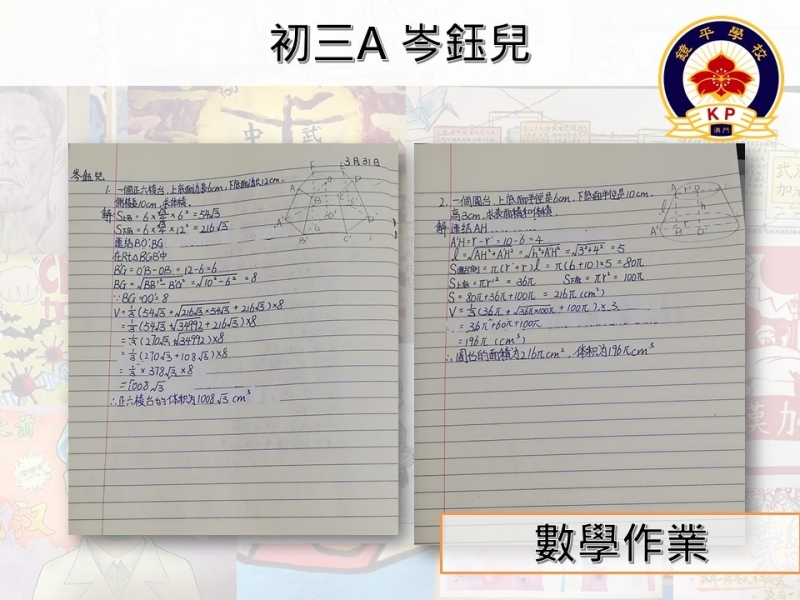 初三A 岑鈺兒
鏡平學校
KP
澳門
岑鈺兒
3月31日
1. 一個正六棱台,上底面边長6cm,下底面边長12cm,
側棱長10cm,求体積。
解 S上底 = 6 × √3/4 × 6² = 54√3
S下底 = 6 × √3/4 × 12² = 216√3
連結BO,BG
在Rt△BGB'中
B'G = O'B' - OB = 12-6=6
BG = √BB'² - B'G² = √10²-6² = 8
∵ BG = OO' = 8
V = 1/3 (54√3 + √216√3×54√3 + 216√3) × 8
= 1/3 (54√3 + √34992 + 216√3) × 8
= 1/3 (270√3 + √34992) × 8
= 1/3 (270√3 + 108√3) × 8
= 1/3 × 378√3 × 8
= 1008√3
∴ 正六棱台的体积为1008√3 cm³
2. 一個圓台,上底面半徑是6cm,下底面半徑是10cm,
高3cm,求表面積和体積。
解 連結AH
A'H = r - r' = 10-6 = 4
l = √AH²+A'H² = √h²+A'H² = √3²+4² = 5
S圓台側 = π(r'+r)l = π(6+10)×5 = 80π
S上底 = πr'² = 36π S下底 = πr² = 100π
S = 80π+36π+100π = 216π (cm²)
V = 1/3 (36π + √36π×100π + 100π) × 3
= 36π+60π+100π
= 196π (cm³)
∴ 圓台的面積为216πcm², 体积为196πcm³
數學作業